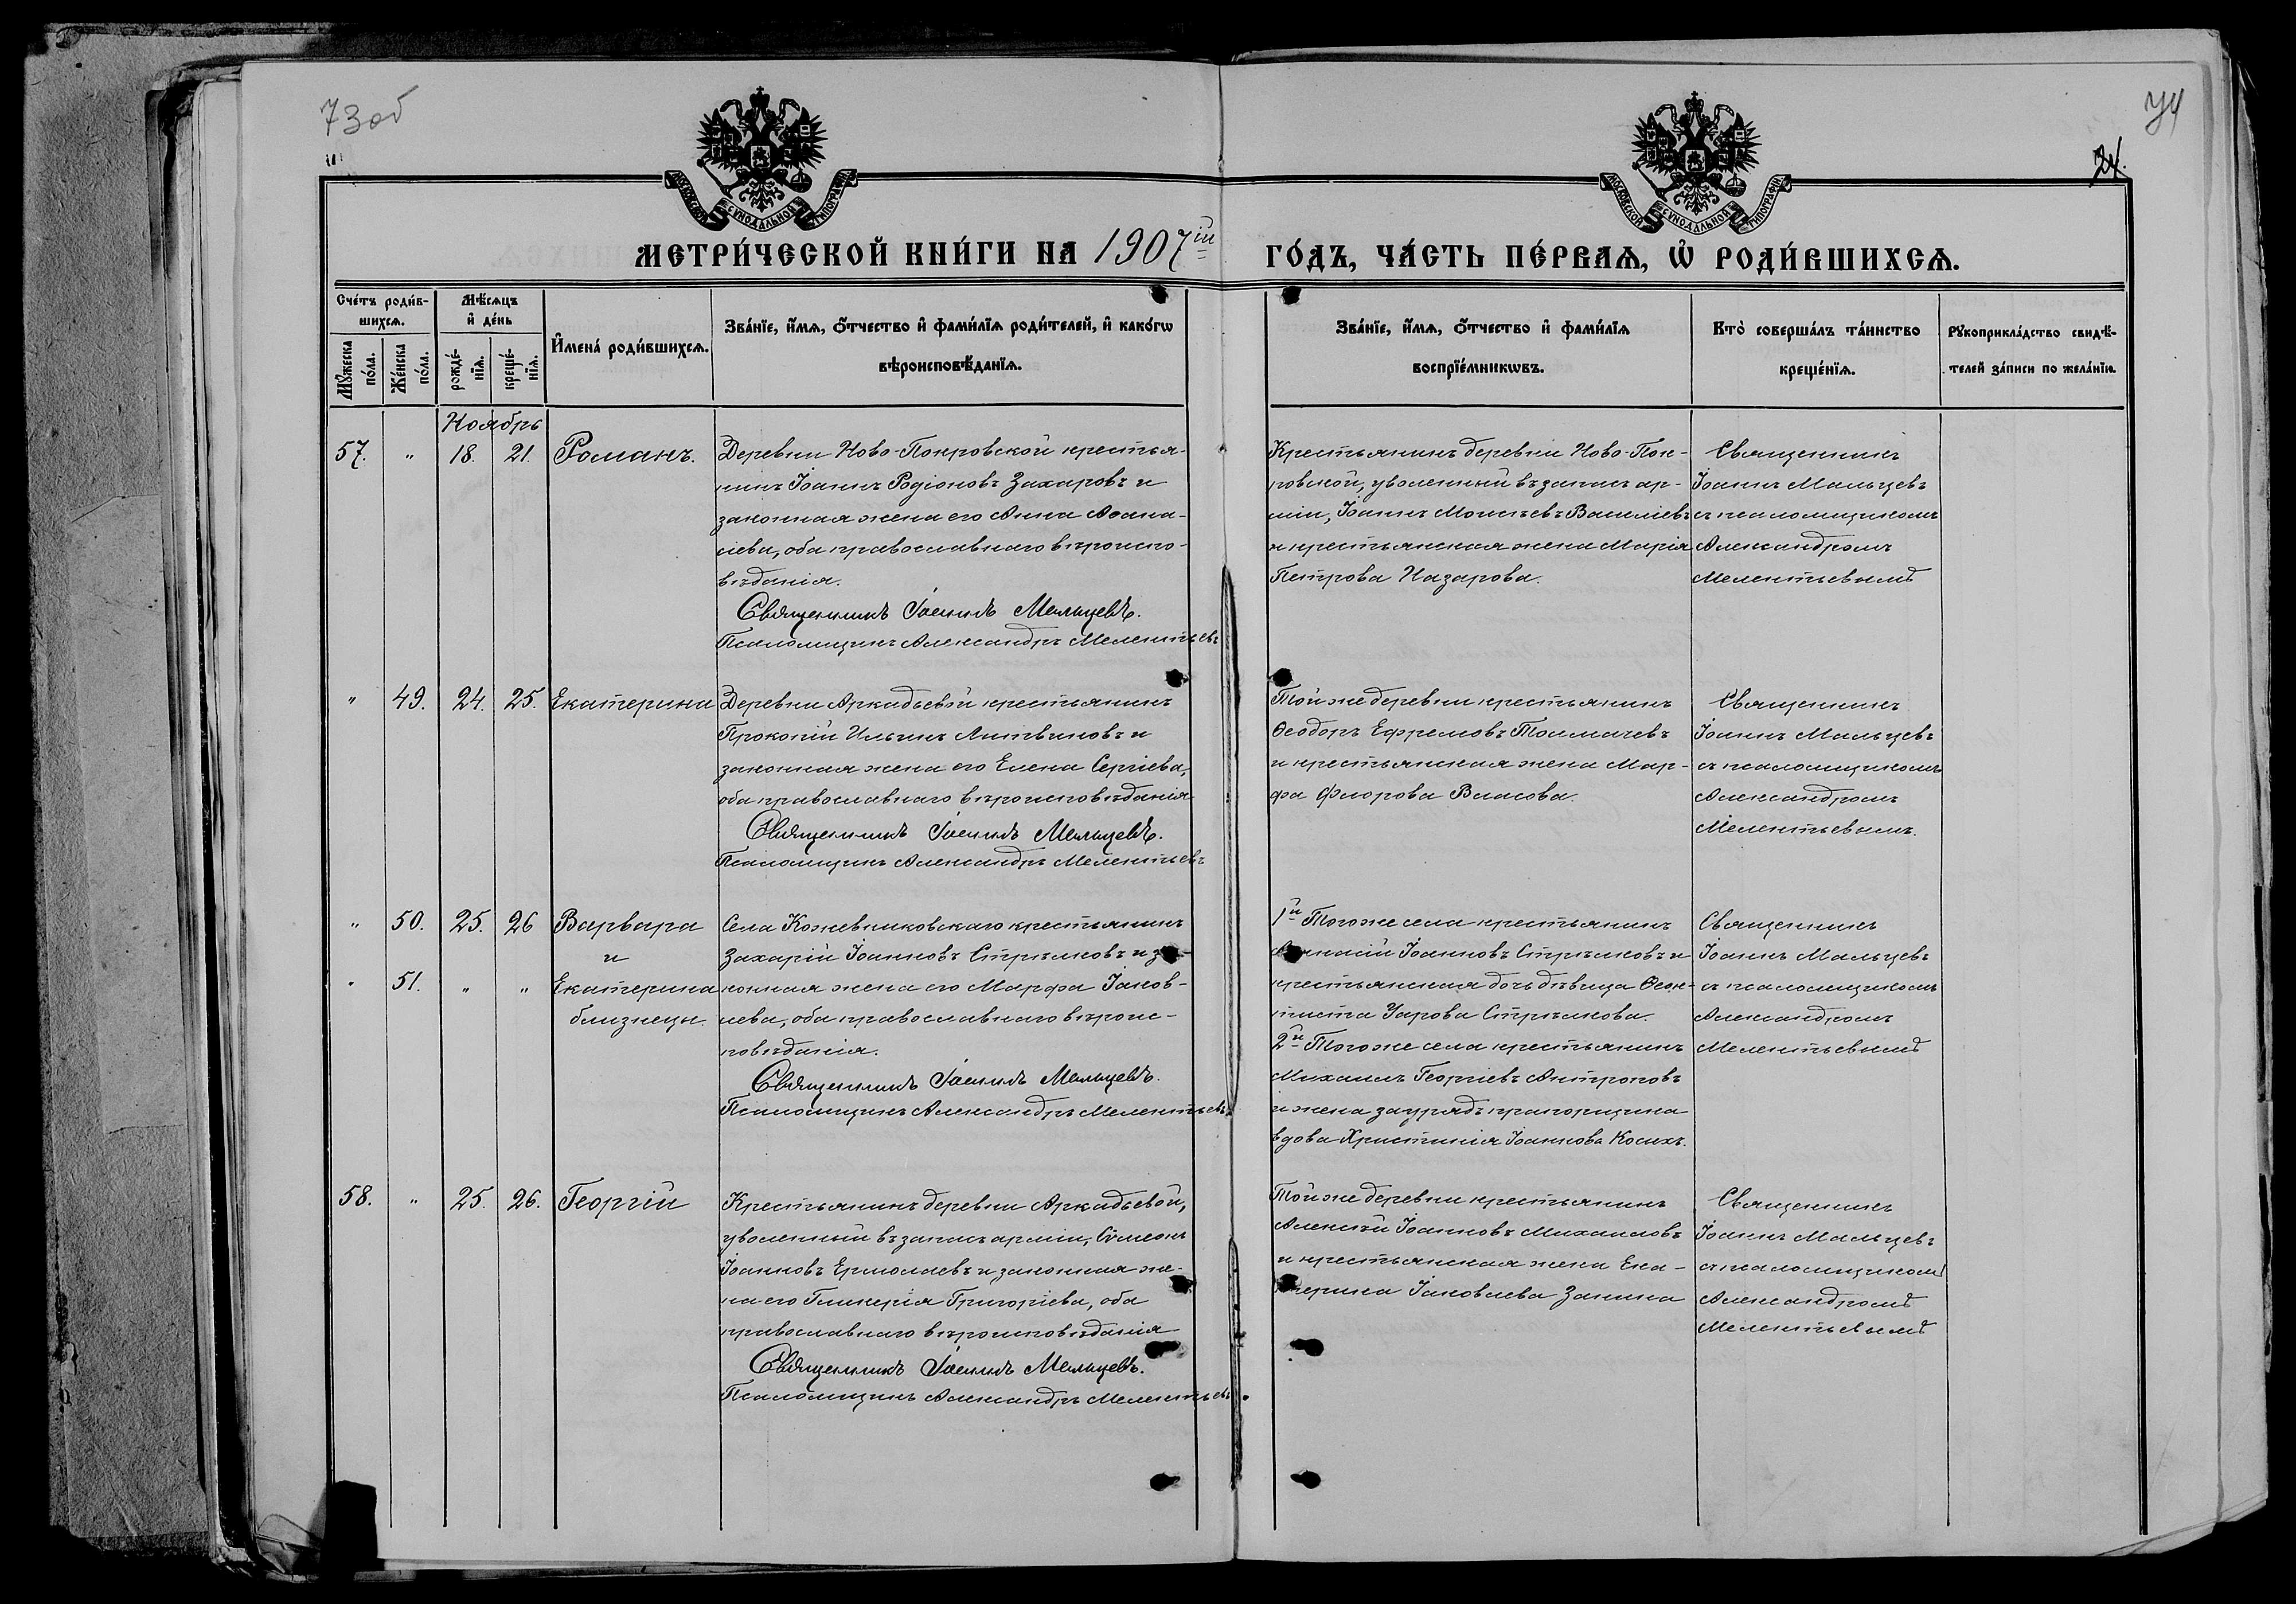 73об
74
24.
МОСКОВСКОЙ СѴНОДАЛЬНОЙ ТИПОГРАФІИ
МОСКОВСКОЙ СѴНОДАЛЬНОЙ ТИПОГРАФІИ
МЕТРИ́ЧЕСКОЙ КНИ́ГИ НА 1907й ГО́ДЪ, ЧА́СТЬ ПЕ́РВАѦ, Ѡ РОДИ́ВШИХСѦ.
Сче́тъ роди́в-
шихсѧ.
Мѣ́сѧцъ
и҆ де́нь
Мꙋ́жеска по́ла.
Же́нска по́ла.
рожде́-
нїѧ.
креще́-
нїѧ.
И҆мена́ роди́вшихсѧ.
Зва́нїе, и҆́мѧ, ѻ҆́тчество и҆ фами́лїѧ роди́телей, и҆ како́гѡ
вѣроисповѣ́данїѧ.
Зва́нїе, и҆́мѧ, ѻ҆́тчество и҆ фами́лїѧ
воспрїе́мникѡвъ.
Кто̀ соверша́лъ та́инство
креще́нїѧ.
Рꙋкоприкла́дство свидѣ́-
телей за́писи по жела́нїю.
Ноябрь
57. " 18. 21. Романъ.
Деревни Ново-Покровской крестья-
нинъ Іоаннъ Родіоновъ Захаровъ и
законная жена его Анна Аѳана-
сіева, оба православнаго вѣроиспо-
вѣданія.
Священникъ Іоаннъ Мальцевъ.
Псаломщикъ Александръ Мелентьевъ
Крестьянинъ деревни Ново-Пок-
ровской, уволенный въ запасъ ар-
міи, Іоаннъ Моисѣевъ Василіевъ
и крестьянская жена Марія
Петрова Назарова.
Священникъ
Іоаннъ Мальцевъ
съ псаломщикомъ
Александромъ
Мелентьевымъ
" 49. 24. 25. Екатерина
Деревни Аркадьевой крестьянинъ
Прокопій Ильинъ Литвиновъ и
законная жена его Елена Сергіева,
оба православнаго вѣроисповѣданія
Священникъ Іоаннъ Мальцевъ.
Псаломщикъ Александръ Мелентьевъ
Той же деревни крестьянинъ
Ѳеодоръ Ефремовъ Толмачевъ
и крестьянская жена Мар-
фа Флорова Власова.
Священникъ
Іоаннъ Мальцевъ
съ псаломщикомъ
Александромъ
Мелентьевымъ.
" 50. 25. 26 Варвара
и
" 51. " " Екатерина
близнецы.
Села Кожевниковскаго крестьянинъ
Захарій Іоанновъ Стрѣлковъ и за-
конная жена его Марфа Іаков-
лева, оба православнаго вѣроис-
повѣданія.
Священникъ Іоаннъ Мальцевъ.
Псаломщикъ Александръ Мелентьевъ
1й Того же села крестьянинъ
Іоанновъ Стрѣлковъ и
крестьянская дочь дѣвица Ѳеок-
тиста Уарова Стрѣлкова.
2й Того же села крестьянинъ
Михаилъ Георгіевъ Антроповъ
и жена заурядъ прапорщика
вдова Христинія Іоаннова Косихъ.
Священникъ
Іоаннъ Мальцевъ
съ псаломщикомъ
Александромъ
Мелентьевымъ
58. " 25. 26. Георгій
Крестьянинъ деревни Аркадьевой,
уволенный въ запасъ арміи, Сѵмеонъ
Іоанновъ Ермолаевъ и законная же-
на его Гликерія Григоріева, оба
православнаго вѣроисповѣданія
Священникъ Іоаннъ Мальцевъ.
Псаломщикъ Александръ Мелентьевъ.
Той же деревни крестьянинъ
Алексѣй Іоанновъ Михаиловъ
и крестьянская жена Ека-
терина Іаковлева Занина
Священникъ
Іоаннъ Мальцевъ
съ псаломщикомъ
Александромъ
Мелентьевымъ